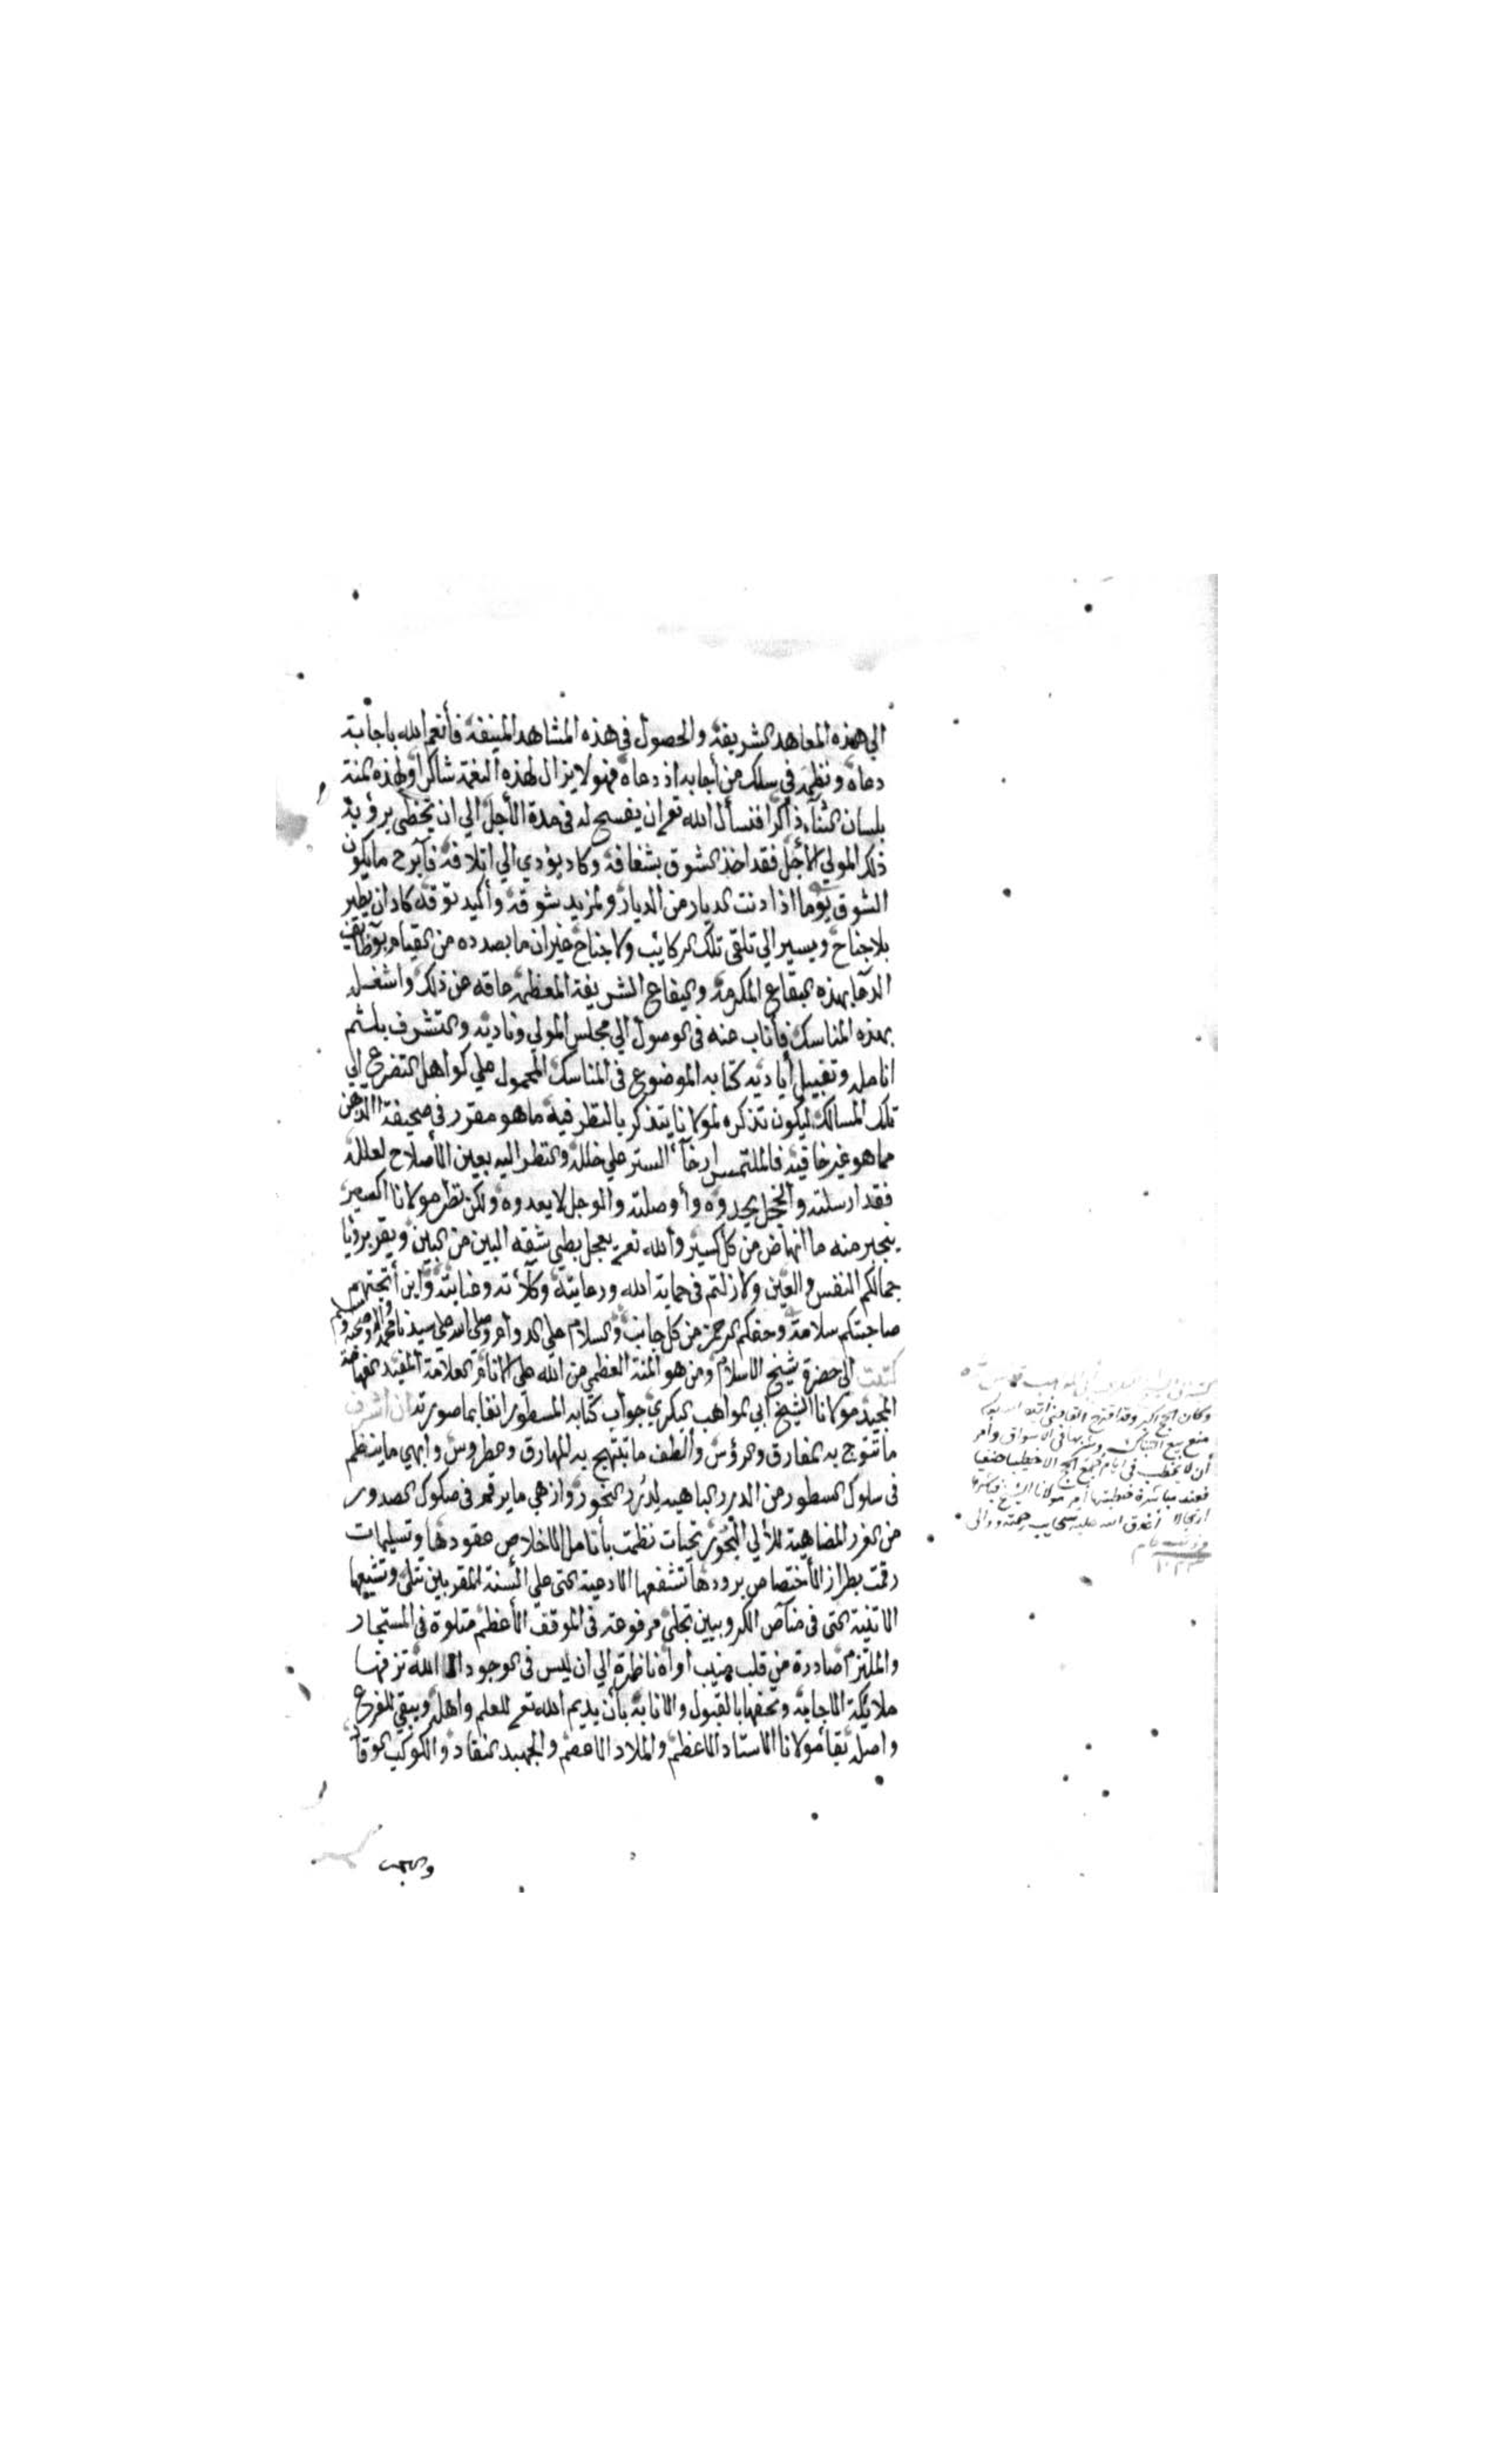 الي هذه المعاهد الشريفة والحصول في هذه المشاهد المنيفة فأنعم الله باجابة
دعاه ونظمه في سلك من أجابه اذ دعاه فهو لا يزال لهذه النعمة شاكرا ولهذه المنة
بلسان الثناء ذاكرا فنسأل الله تع ان يفسح له في مدة الأجل الي ان يحظى برؤية
ذلك المولي الأجل فقد اخذ الشوق بشغافه وكاد يؤدي الي اتلافه فأبرح ما يكون
الشوق يوما اذا دنت الديار من الديار ولمزيد شوقه وأكيد توقه كاد ان يطير
بلا جناح ويسير الي تلقى تلك الركائب ولا جناح غير ان ما بصدده من القيام بوظائف
الدعا بهذه البقاع المكرمة واليفاع الشريفة المعظمه عاقه عن ذلك واشغله
بهذه المناسك فأناب عنه في الوصول الي مجلس المولي وناديه والتشرف بلثم
انامله وتقبيل أياديه كتابه الموضوع في المناسك المحمول علي كواهل التضرع الي
تلك المسالك ليكون تذكره لمولانا يتذكر بالنظر فيه ما هو مقرر في صحيفة الذهن
مما هو غير خافيه فالملتمس ارخاء الستر علي خلله والنظر اليه بعين الأصلاح لعلله
فقد ارسلته والخجل يحدوه وأوصلته والوجل لا يعدوه ولكن نظر مولانا اكسير
ينجبر منه ما انهاض من كل كسير والله تع يعجل بطي شقه البين من البين ويقر برؤيا
جمالكم النفس والعين ولا زلتم في حماية الله ورعايته وكلأته وعنايته واين أتجهتم
صاحبتكم سلامة وحفكم الرحمن من كل جانب والسلام علي الدوام وصلى الله علي سيدنا محمد واله وصحبه وسلم
كتبت الي حضرة شيخ الاسلام ومن هو المنة العظمي من الله علي الانام العلامة المفيد الفهامة
المجيد مولانا الشيخ أبي المواهب البكري جواب كتابه المسطور انفا بما صورته ان اشرف
ما تتوج به المفارق والرؤس وألطف ما تبتهج به المهارق والطروس وابهي ما ينتظم
في سلوك السطور من الدرر الباهية لدرر النحور وازهي ما يرقم في صكوك الصدور
من الغرر المضاهية للألي البحور تحيات نظمت بأنامل الاخلاص عقودها وتسليمات
رقمت بطراز الأختصاص برودها تشفعها الادعية التي علي ألسنة المقربين تتلى وتشيعها
الاثنية التي في مناص الكروبيين تجلى مرفوعة في الموقف الأعظم متلوة في المستجار
والملتزم صادرة من قلب منيب أواه ناظرة الي ان ليس في الوجود الا الله تزفها
ملائكة الاجابة وتحفها بالقبول والانابة بأن يديم الله تع للعلم واهله ويبقي للفرع
واصله بقا مولانا الاستاد الاعظم والملاد الاعصم والجهبد النقاد والكوكب الوقاد
وكان الحج اكبر وقد اقترح القاضي
منع بيع وشربها في الاسواق وأمر
أن لا يخطب في ايام جمع الحج الا خطيبا حنفيا
فعند مباشرة خطبتها أمر مولانا الشيخ
ارتجالا أغدق الله عليه سحايب رحمته ووالى